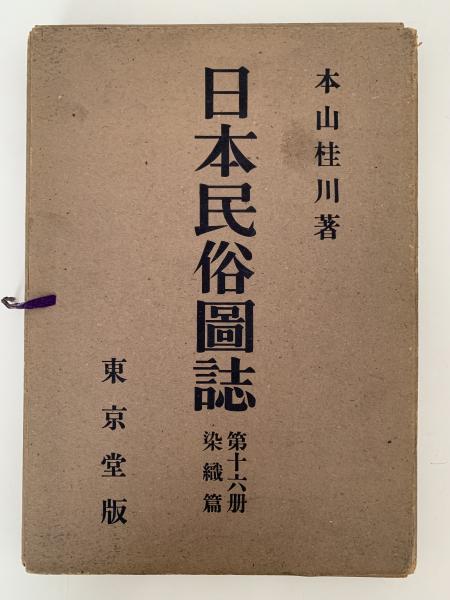 本山桂川著
日本民俗圖誌
第十六册
染織篇
東京堂版